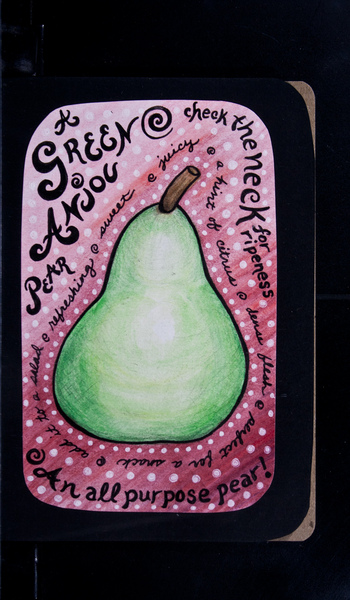 A
GREEN
ANJOU
PEAR
check the neck for
ripeness
add it to a salad @ refreshing @ sweet @ juicy
@ a hint of citrus @ dense flesh @ perfect for a snack @
An all purpose pear!